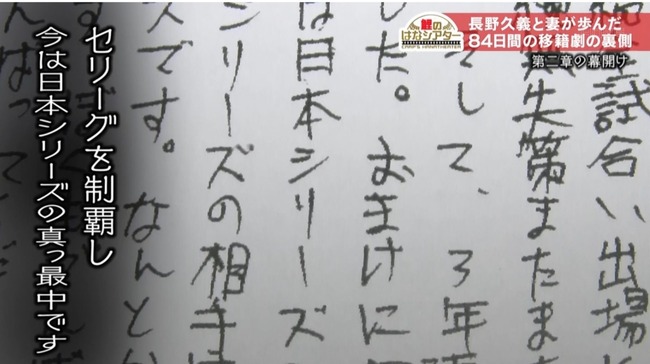 鯉の
はなシアター
CARP'S HANATHEATER
長野久義と妻が歩んだ
84日間の移籍劇の裏側
第二章の幕開け
試合い出場
失策またま
して、3年
した。おまけに
は日本シリーズ
リーズの相手
スです。なんと
セリーグを制覇し
今は日本シリーズの真っ最中です